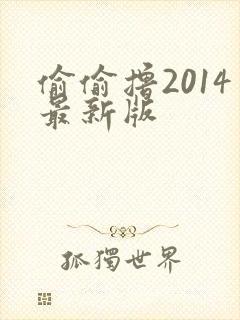 偷偷撸2014
最新版
孤獨世界